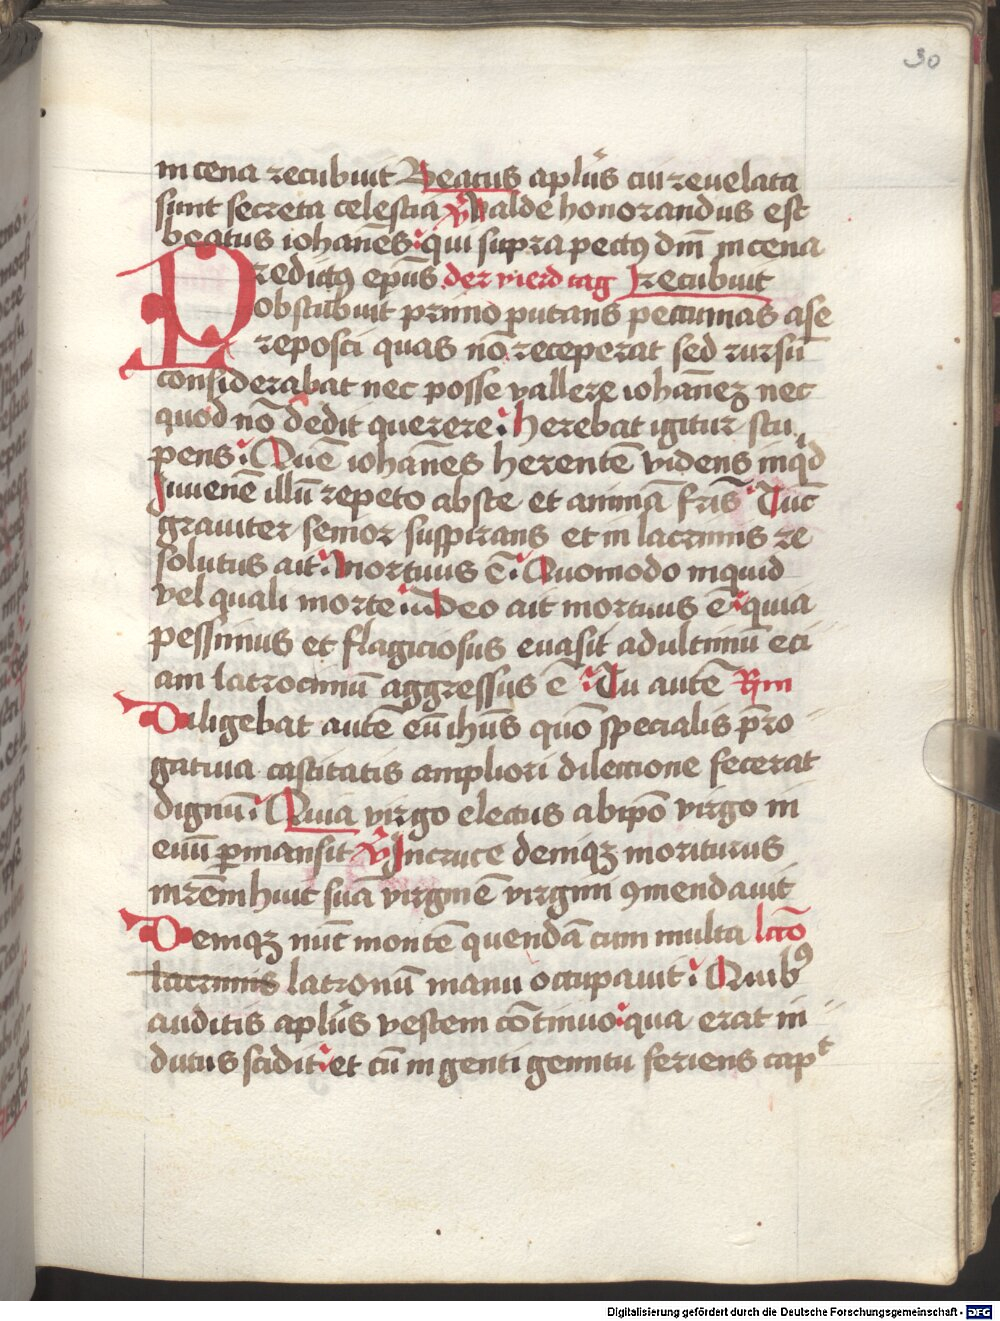 30
in cena recubuit Beatus apl'us cui reuelata
sunt secreta celestia V Valde honorandus est
beatus iohan̄es qui supra pectꝯ dn̄i in cena
Predictꝯ ep̄us der vierd tag recubuit
obstubuit primo putans pecunias a se
reposci quas nō receperat sed rursū
considerabat nec posse vallere iohan̄eʒ nec
quod nō dedit querere herebat igitur stu
pens Quē iohan̄es herentē videns inqͥd
Iuuenē illū repeto abste et animā fr̄is Tūc
grauiter senior suspirans et in lacrimis re
solutus ait Mortuus ē Quomodo inquid
vel quali morte Deo ait mortuus ē quia
pessimus et flagiciosus euasit ad ultimū eci
am latrociniū aggressus ē Tu autē Rm
Diligebat autē eū ih̄us quō specialis p̄ro
gatiua castitatis ampliori dilectione fecerat
dignū Quia virgo electus ab ip̄o virgo in
euū ꝑmansit V In cruce demiqꝫ moriturus
mr̄em huic suā virginē virgini ꝯmendauit
Demiqꝫ nūc montē quendā cum multa lc̄o
lacrimis latronū manu occupauit Quibꝯ
auditis apl'us vestem cōtinuo qua erat in
dutus scidit et cū ingenti gemitu feriens capᵗ
Digitalisierung gefördert durch die Deutsche Forschungsgemeinschaft - DFG